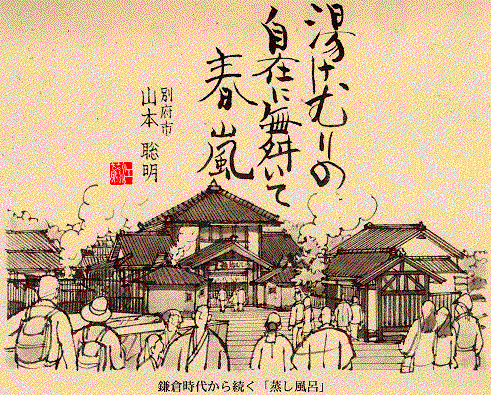 湯けむりの
自在に舞いて
春嵐
別府市
山本 聡明
鎌倉時代から続く「蒸し風呂」